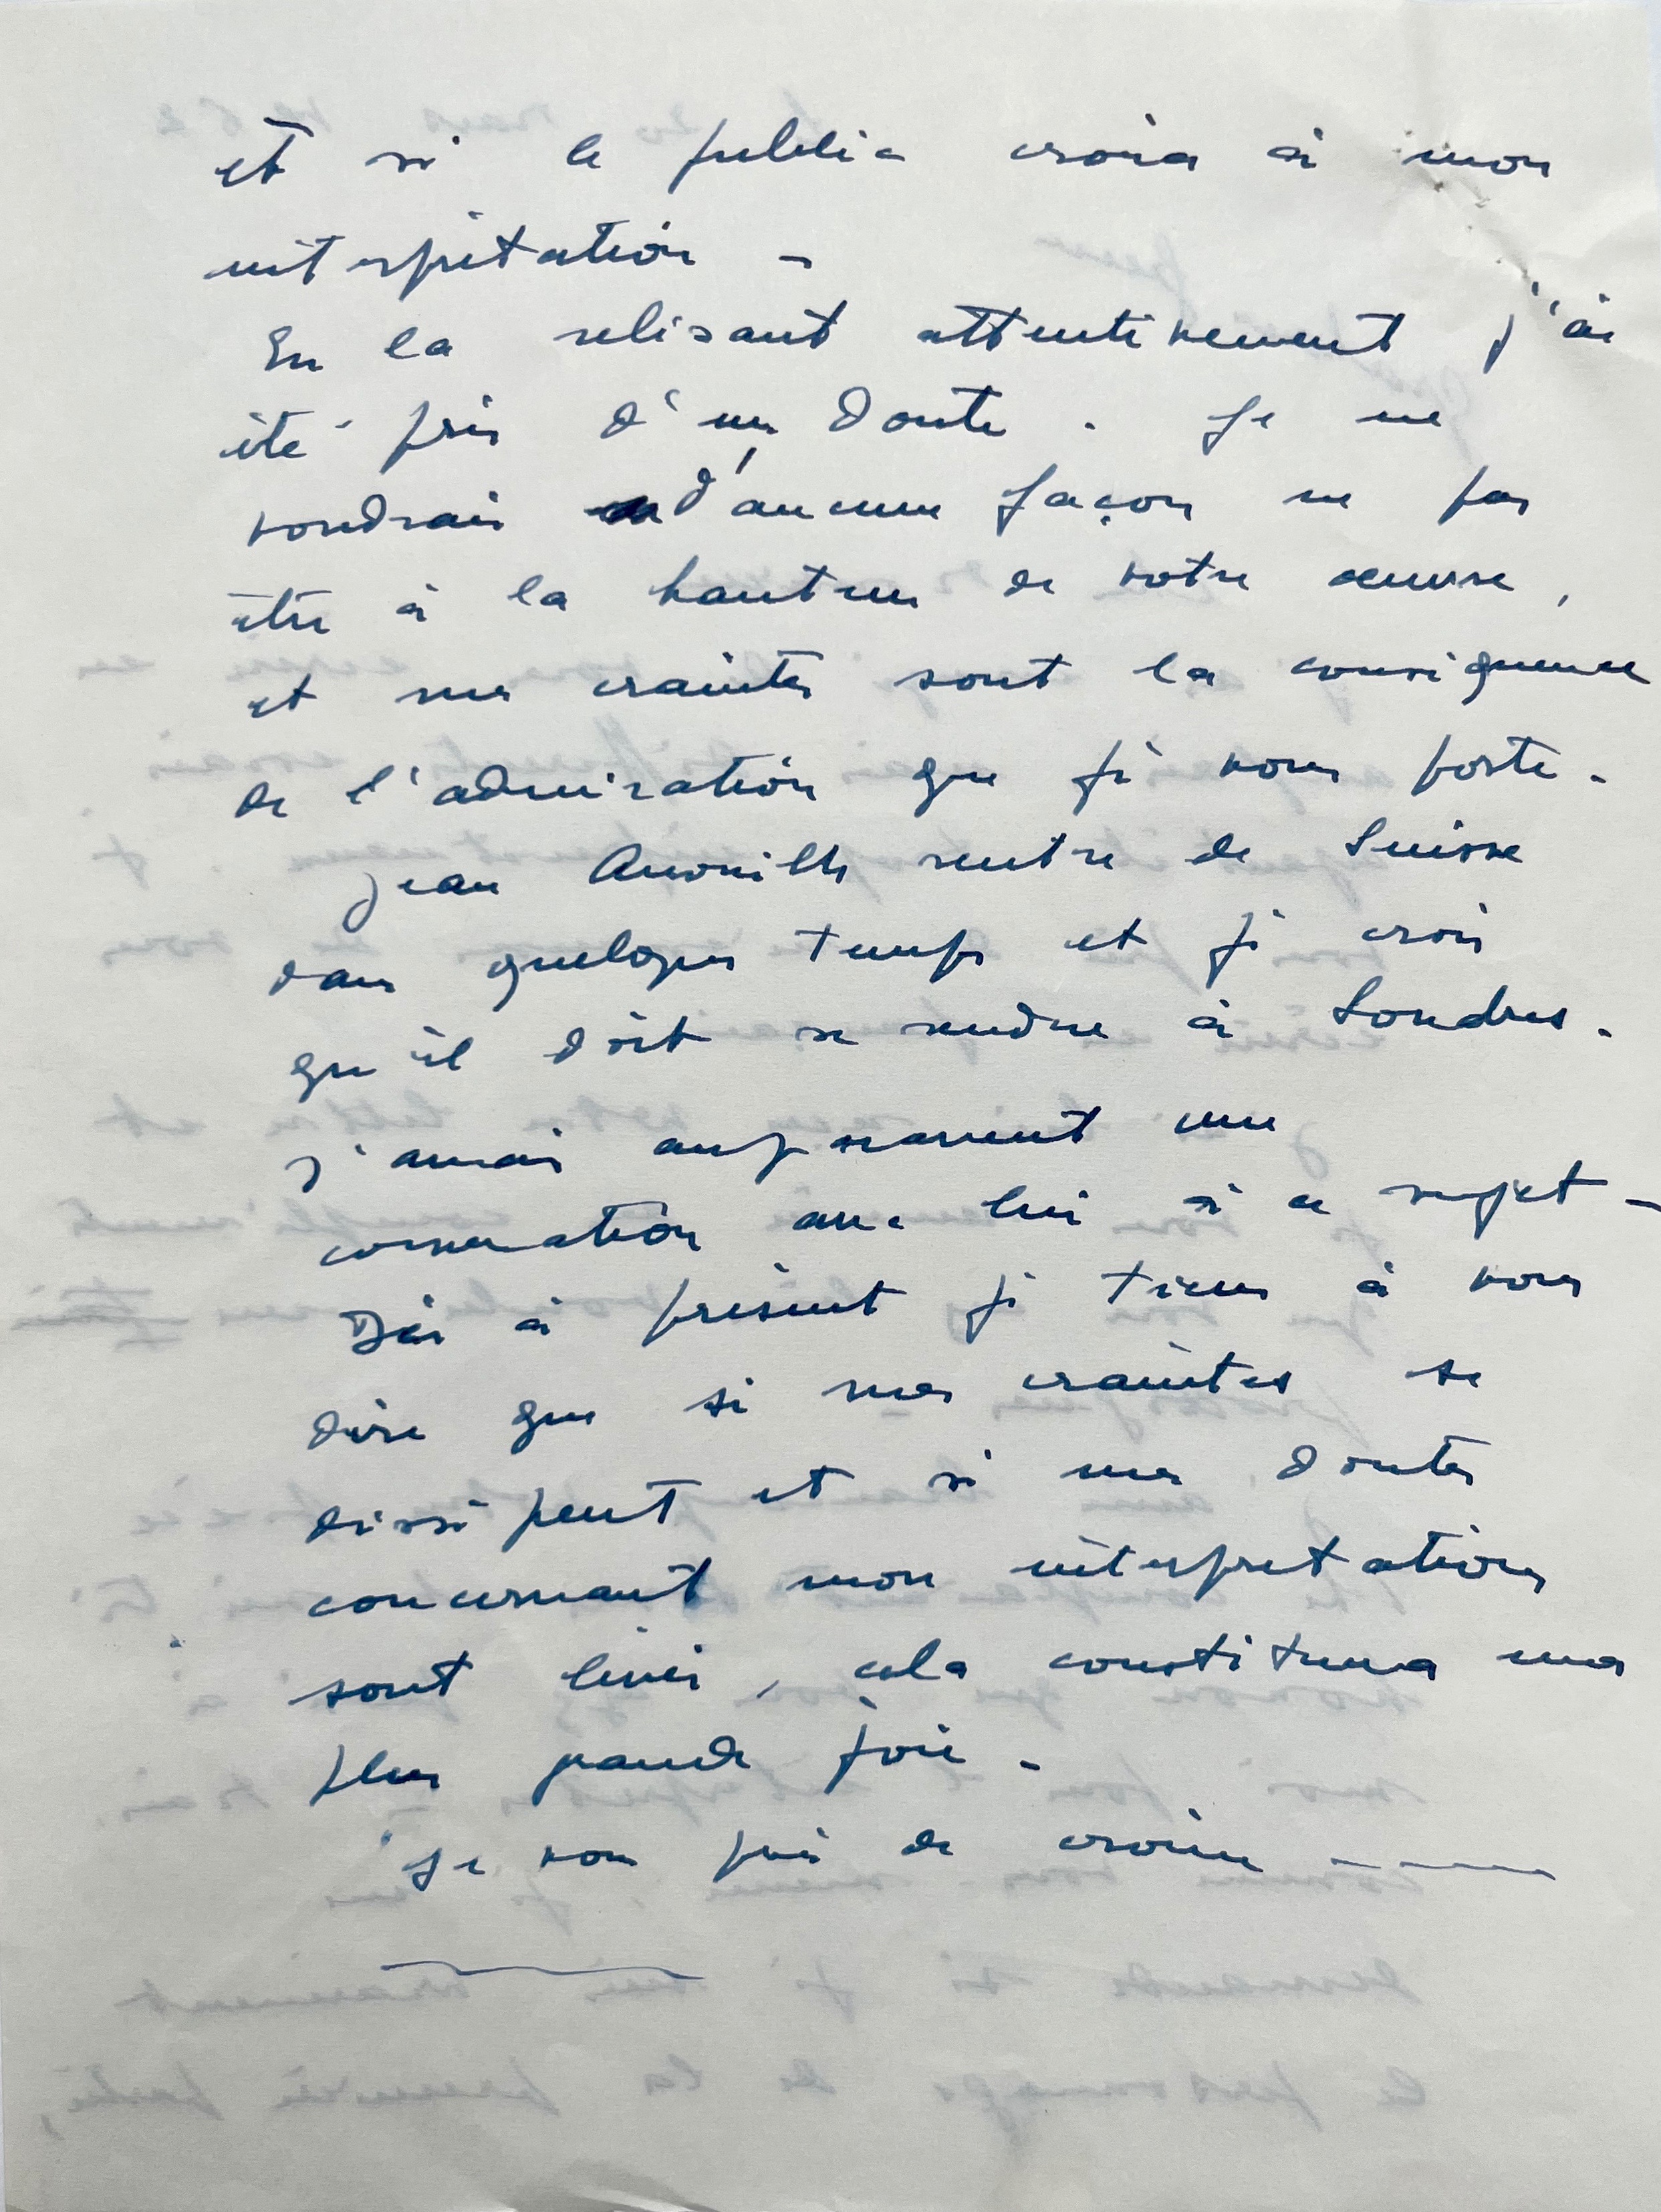 et si le public croira à mon
interprétation -
En la relisant attentivement j'ai
été pris d'un doute. Je ne
voudrais d'aucune façon ne pas
être à la hauteur de votre œuvre,
et mes craintes sont la conséquence
de l'admiration que je vous porte.
Jean Anouilh rentre de Suisse
dans quelques temps et je crois
qu'il doit se rendre à Londres.
J'aurai auparavant une
conversation avec lui à ce sujet -
Dès à présent je tiens à vous
dire que si mes craintes se
dissipent et si mes doutes
concernant mon interprétation
sont levés, cela constituera ma
plus grande joie.
Je vous prie de croire - - —